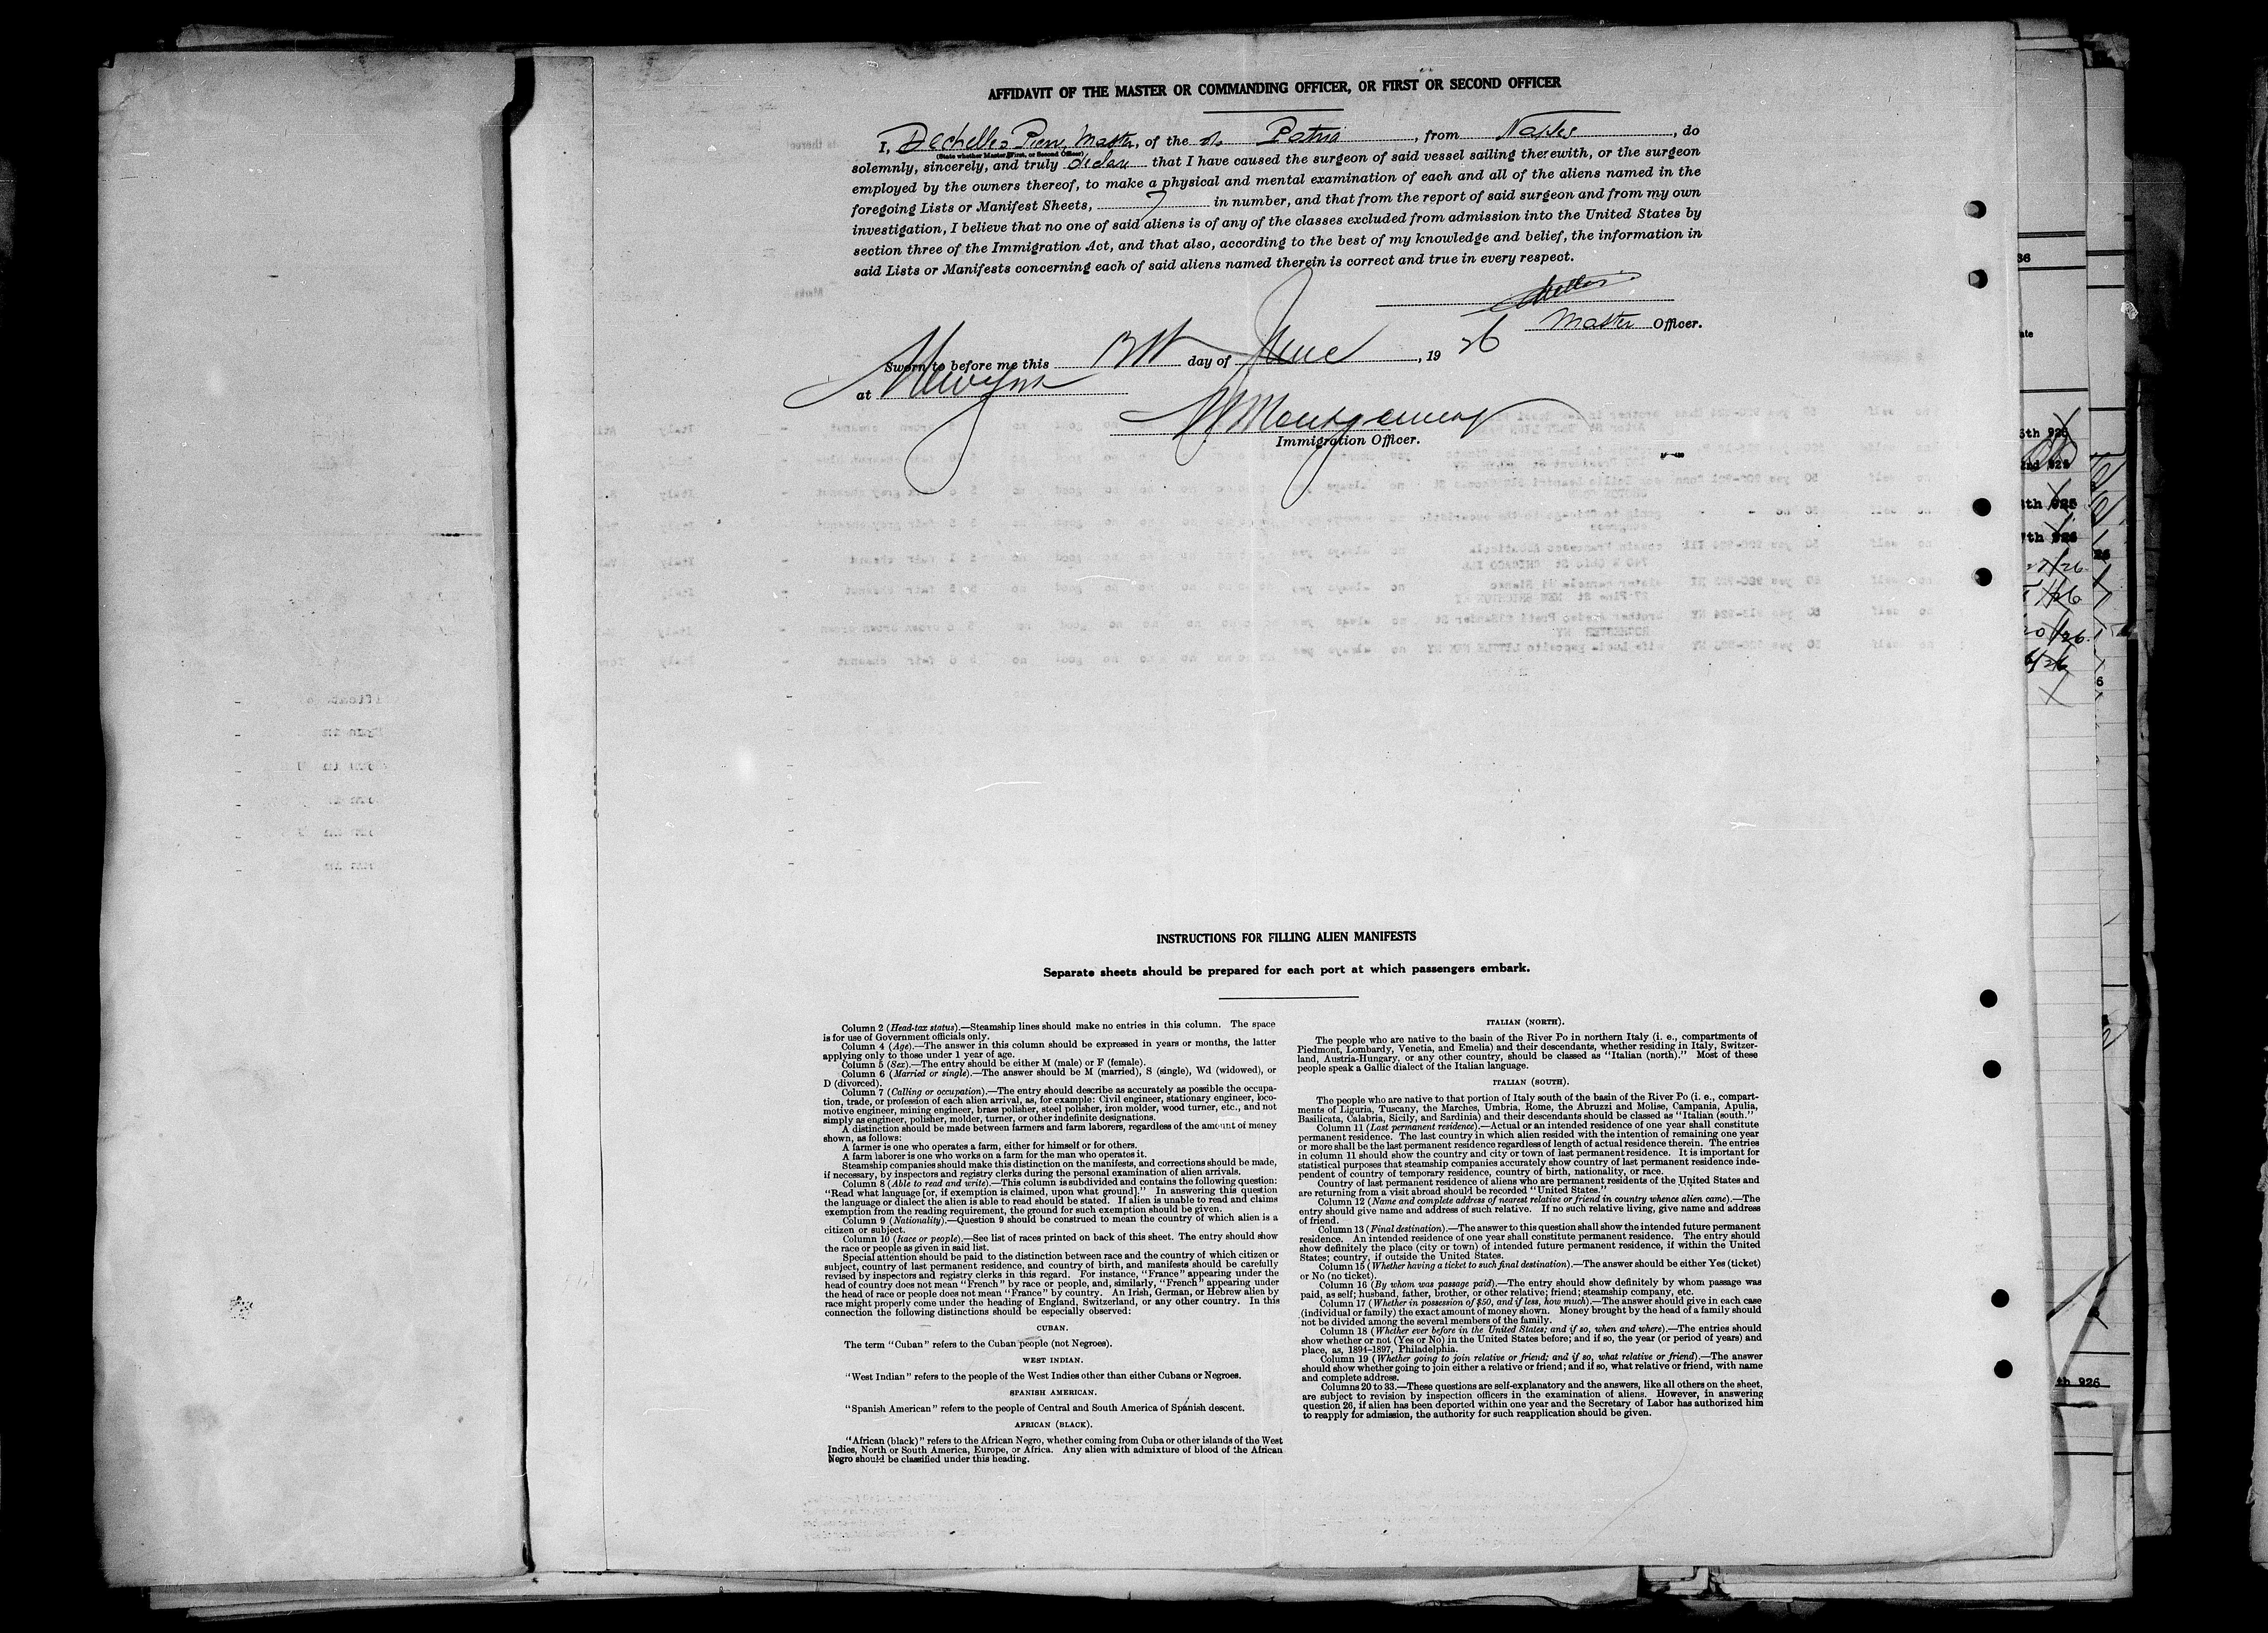 AFFIDAVIT OF THE MASTER OR COMMANDING OFFICER, OR FIRST OR SECOND OFFICER
I, Dechelles Pierre, Master, of the ss Patria, from Naples, do
(State whether Master, First, or Second Officer)
solemnly, sincerely, and truly declare that I have caused the surgeon of said vessel sailing therewith, or the surgeon
employed by the owners thereof, to make a physical and mental examination of each and all of the aliens named in the
foregoing Lists or Manifest Sheets, 7 in number, and that from the report of said surgeon and from my own
investigation, I believe that no one of said aliens is of any of the classes excluded from admission into the United States by
section three of the Immigration Act, and that also, according to the best of my knowledge and belief, the information in
said Lists or Manifests concerning each of said aliens named therein is correct and true in every respect.
Master Officer.
Sworn to before me this day of June, 1926
at
Montgomery
Immigration Officer.
INSTRUCTIONS FOR FILLING ALIEN MANIFESTS
Separate sheets should be prepared for each port at which passengers embark.
Column 2 (Head-tax status).—Steamship lines should make no entries in this column. The space
is for use of Government officials only.
Column 4 (Age).—The answer in this column should be expressed in years or months, the latter
applying only to those under 1 year of age.
Column 5 (Sex).—The entry should be either M (male) or F (female).
Column 6 (Married or single).—The answer should be M (married), S (single), Wd (widowed), or
D (divorced).
Column 7 (Calling or occupation).—The entry should describe as accurately as possible the occupa-
tion, trade, or profession of each alien arrival, as, for example: Civil engineer, stationary engineer, loco-
motive engineer, mining engineer, brass polisher, steel polisher, iron molder, wood turner, etc., and not
simply as engineer, polisher, molder, turner, or other indefinite designations.
A distinction should be made between farmers and farm laborers, regardless of the amount of money
shown, as follows:
A farmer is one who operates a farm, either for himself or for others.
A farm laborer is one who works on a farm for the man who operates it.
Steamship companies should make this distinction on the manifests, and corrections should be made,
if necessary, by inspectors and registry clerks during the personal examination of alien arrivals.
Column 8 (Able to read and write).—This column is subdivided and contains the following question:
"Read what language [or, if exemption is claimed, upon what ground]." In answering this question
the language or dialect the alien is able to read should be stated. If alien is unable to read and claims
exemption from the reading requirement, the ground for such exemption should be given.
Column 9 (Nationality).—Question 9 should be construed to mean the country of which alien is a
citizen or subject.
Column 10 (Race or people).—See list of races printed on back of this sheet. The entry should show
the race or people as given in said list.
Special attention should be paid to the distinction between race and the country of which citizen or
subject, country of last permanent residence, and country of birth, and manifests should be carefully
revised by inspectors and registry clerks in this regard. For instance, "France" appearing under the
head of country does not mean "French" by race or people, and, similarly, "French" appearing under
the head of race or people does not mean "France" by country. An Irish, German, or Hebrew alien by
race might properly come under the heading of England, Switzerland, or any other country. In this
connection the following distinctions should be especially observed:
CUBAN.
The term "Cuban" refers to the Cuban people (not Negroes).
WEST INDIAN.
"West Indian" refers to the people of the West Indies other than either Cubans or Negroes.
SPANISH AMERICAN.
"Spanish American" refers to the people of Central and South America of Spanish descent.
AFRICAN (BLACK).
"African (black)" refers to the African Negro, whether coming from Cuba or other islands of the West
Indies, North or South America, Europe, or Africa. Any alien with admixture of blood of the African
Negro should be classified under this heading.
ITALIAN (NORTH).
The people who are native to the basin of the River Po in northern Italy (i. e., compartments of
Piedmont, Lombardy, Venetia, and Emelia) and their descendants, whether residing in Italy, Switzer-
land, Austria-Hungary, or any other country, should be classed as "Italian (north)." Most of these
people speak a Gallic dialect of the Italian language.
ITALIAN (SOUTH).
The people who are native to that portion of Italy south of the basin of the River Po (i. e., compart-
ments of Liguria, Tuscany, the Marches, Umbria, Rome, the Abruzzi and Molise, Campania, Apulia,
Basilicata, Calabria, Sicily, and Sardinia) and their descendants should be classed as "Italian (south."
Column 11 (Last permanent residence).—Actual or an intended residence of one year shall constitute
permanent residence. The last country in which alien resided with the intention of remaining one year
or more shall be the last permanent residence regardless of length of actual residence therein. The entries
in column 11 should show the country and city or town of last permanent residence. It is important for
statistical purposes that steamship companies accurately show country of last permanent residence inde-
pendent of country of temporary residence, country of birth, nationality, or race.
Country of last permanent residence of aliens who are permanent residents of the United States and
are returning from a visit abroad should be recorded "United States."
Column 12 (Name and complete address of nearest relative or friend in country whence alien came).—The
entry should give name and address of such relative. If no such relative living, give name and address
of friend.
Column 13 (Final destination).—The answer to this question shall show the intended future permanent
residence. An intended residence of one year shall constitute permanent residence. The entry should
show definitely the place (city or town) of intended future permanent residence, if within the United
States; country, if outside the United States.
Column 15 (Whether having a ticket to such final destination).—The answer should be either Yes (ticket)
or No (no ticket).
Column 16 (By whom was passage paid).—The entry should show definitely by whom passage was
paid, as self; husband, father, brother, or other relative; friend; steamship company, etc.
Column 17 (Whether in possession of $50, and if less, how much).—The answer should give in each case
(individual or family) the exact amount of money shown. Money brought by the head of a family should
not be divided among the several members of the family.
Column 18 (Whether ever before in the United States; and if so, when and where).—The entries should
show whether or not (Yes or No) in the United States before; and if so, the year (or period of years) and
place, as, 1894-1897, Philadelphia.
Column 19 (Whether going to join relative or friend; and if so, what relative or friend).—The answer
should show whether going to join either a relative or friend; and if so, what relative or friend, with name
and complete address.
Columns 20 to 33.—These questions are self-explanatory and the answers, like all others on the sheet,
are subject to revision by inspection officers in the examination of aliens. However, in answering
question 26, if alien has been deported within one year and the Secretary of Labor has authorized him
to reapply for admission, the authority for such reapplication should be given.